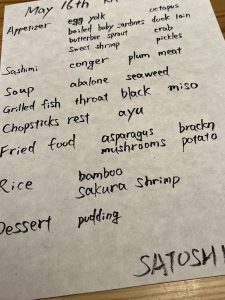 May 16th
Appenzer egg yolk octopus
boiled baby sardines duck loin
butterbur sprout crab
sweet shrimp pickles
Sashimi conger plum meat
Soup abalone seaweed
Grilled fish throat black miso
Chopsticks rest ayu
Fried food asparagus brackn
mushrooms potato
Rice bamboo
sakura shrimp
Dessert pudding
SATOSHI